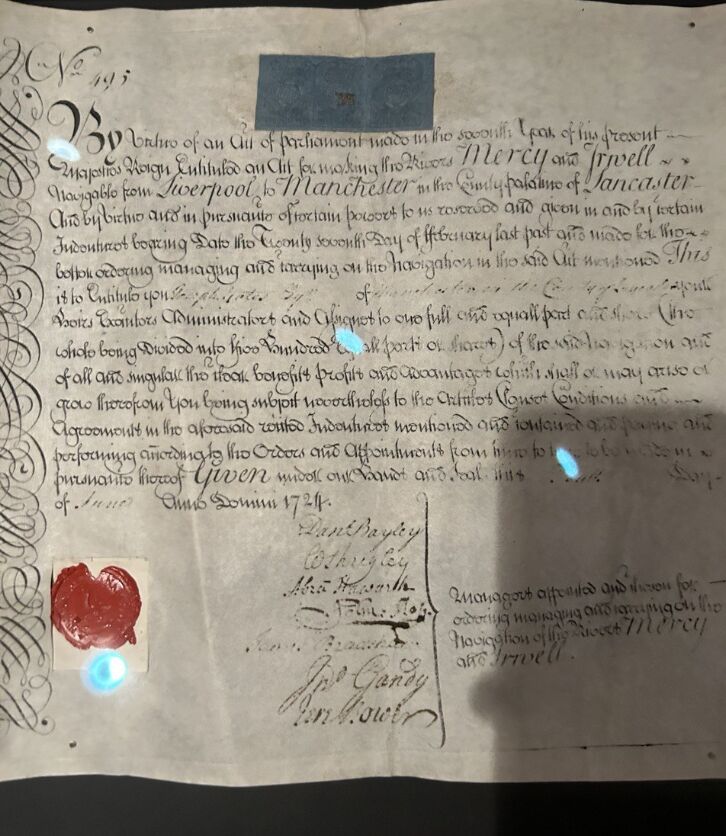 No 495
By Virtue of an Act of Parliament made in the seventh Year of his present
Majesties Reign Entituled an Act for making the Rivers Mercy and Irwell
Navigable from Liverpool to Manchester in the County palatine of Lancaster
And by virtue and in pursuance of certain powers to us reserved and given in and by certain
Indentures bearing Date the Twenty seventh Day of ffebruary last past and made for the
better ordering managing and carrying on the Navigation in the said Act mentioned This
is to Entitule you of your
Heirs Executors Administrators and Assignes to one full and equall part and share (the
whole being divided into five Hundred parts or shares) of the said Navigation and
of all and singular the stock benefits profits and advantages which shall or may arise or
grow therefrom You being subject nevertheless to the Articles Clauses Conditions and
Agreements in the aforesaid recited Indentures mentioned and contained and paying and
performing according to the Orders and Appointments from time to time to be made in
pursuance thereof Given under our Hands and Seals this Day
of June Anno Domini 1724.
Danl Bayley
Abra Haworth
Jno Gandy
Managers appointed and chosen for
ordering managing and carrying on the
Navigation of the Rivers Mercy
and Irwell.